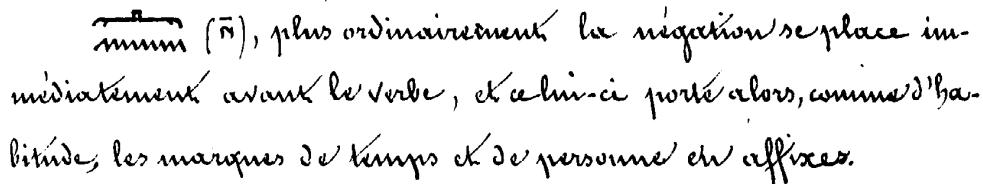 (n̄), plus ordinairement la négation se place im-
médiatement avant le verbe, et celui-ci porte alors, comme d'ha-
bitude, les marques de temps et de personne en affixes.